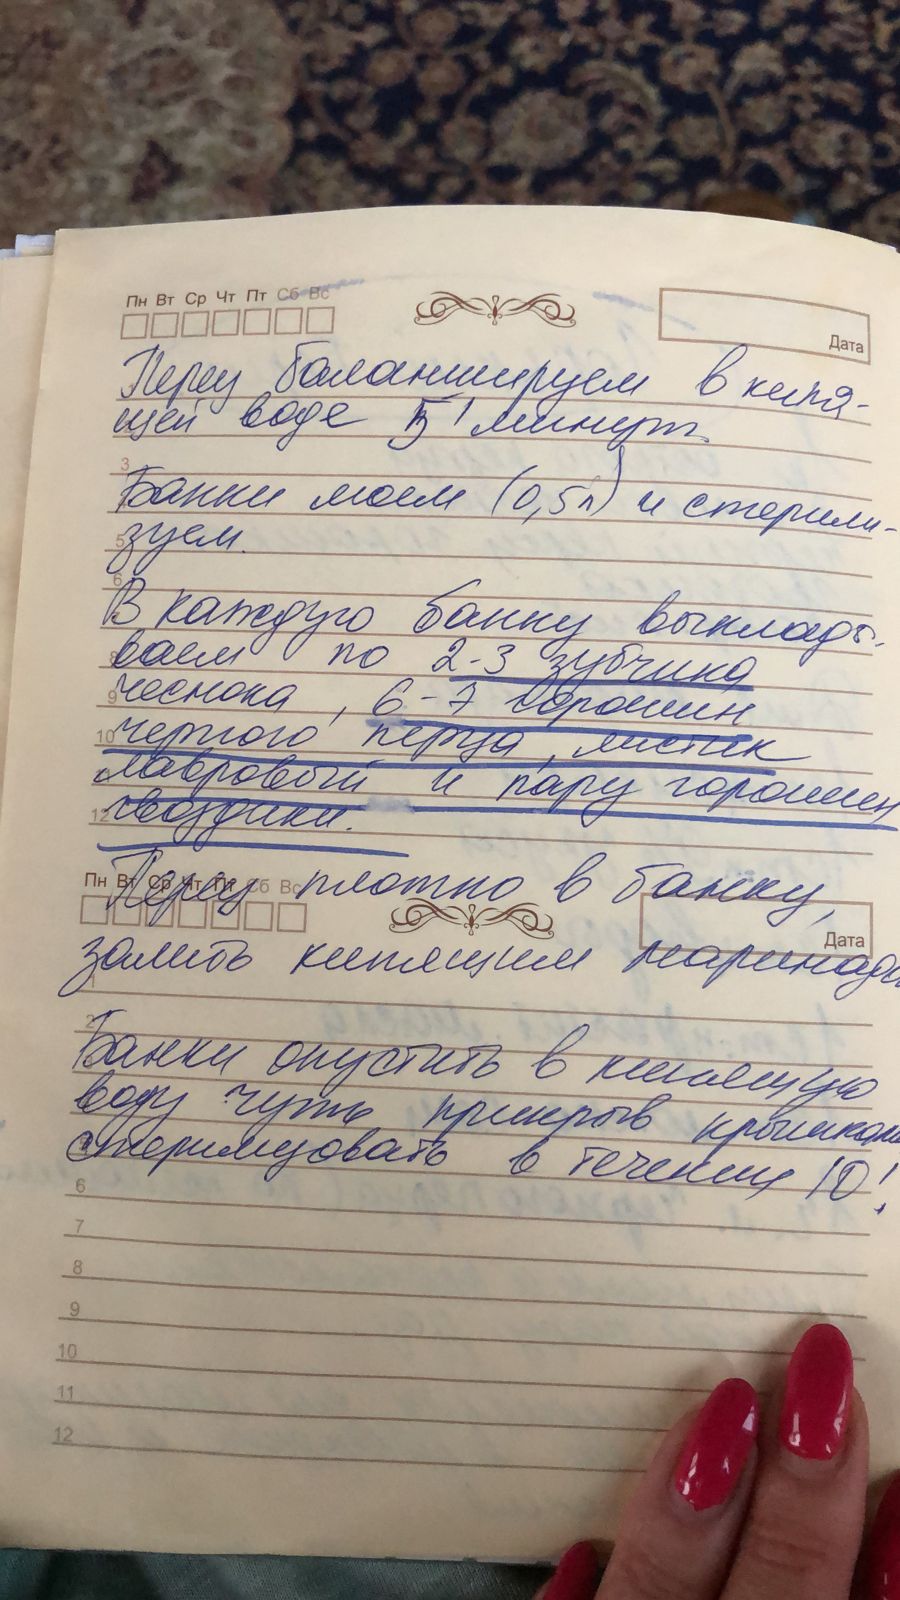 Пн Вт Ср Чт Пт Сб Вс
Дата
Перец баланшируем в кипя-
щей воде 5! минут.
3
Банки моем (0,5л) и стерили-
5
зуем.
6
В каждую банку выклады-
ваем по 2-3 зубчика
8
9
чеснока, 6-7 горошин
10
черного перца, листик
лавровый и пару горошин
12
гвоздики.
Перец плотно в банку,
Пн Вт Ср Чт Пт Сб Вс
Дата
залить кипящим маринадом
1
2
Банки опустить в кипящую
воду чуть прикрыв крышками
стерилизовать в течении 10!
6
7
8
9
10
11
12